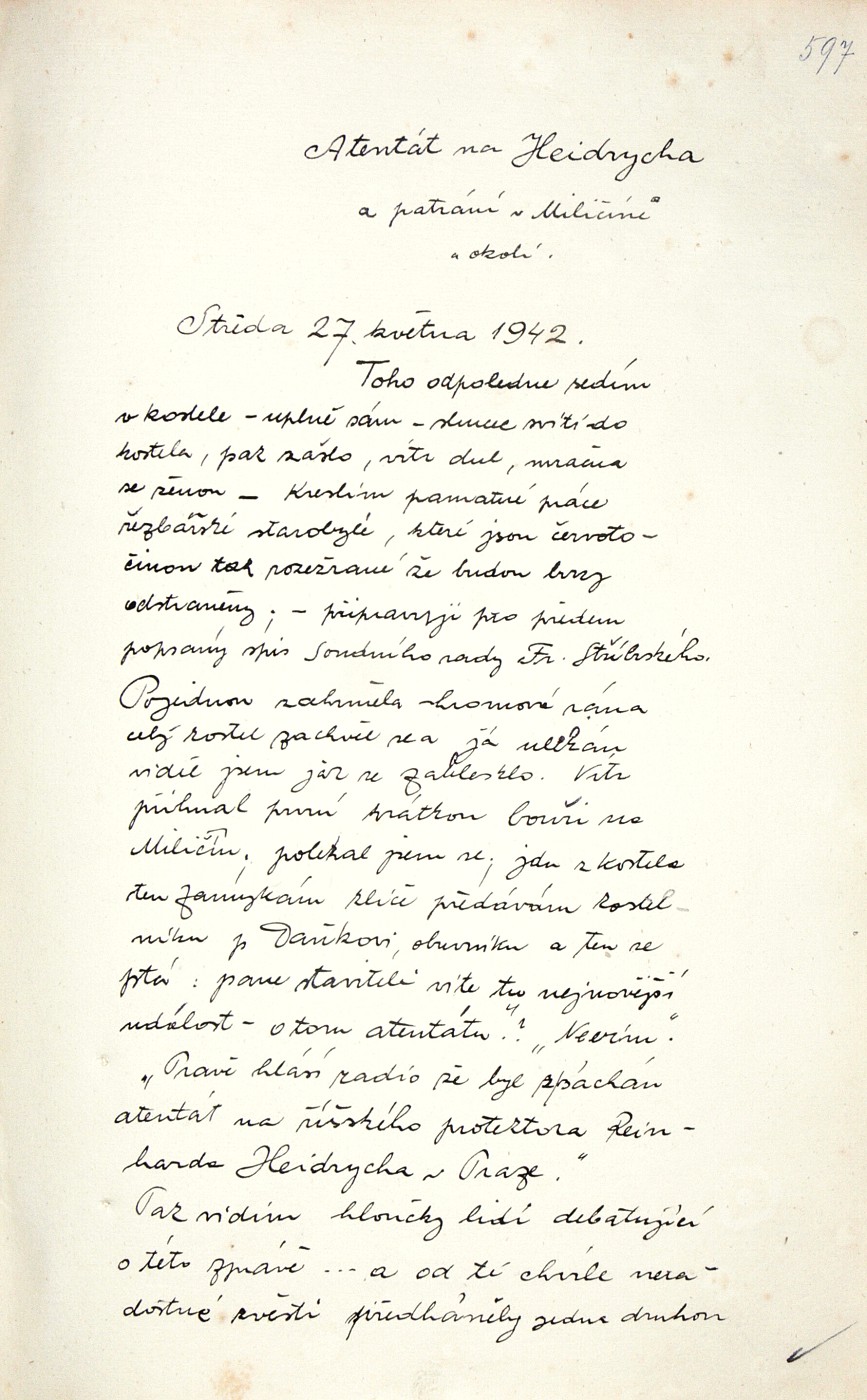 597
Atentát na Heidrycha
a patrání v Miličíně
a okolí.
Středa 27. května 1942.
Toho odpoledne sedím
v kostele – uplně sám – slunce svítí do
kostela, pak zašlo, vítr dul, mračna
se ženou – Kreslím pamatné práce
řezbářské starobylé, které jsou červoto-
činou tak rozežrané že budou brzy
odstraněny; – připravuji pro předem
popsaný spis Soudního rady Fr. Stříbrského.
Pojednou zahrměla – hromová rána
celý kostel zachvěl se a já ulekán
viděl jsem jak se zablesklo. Vítr
přihnal první krátkou bouři na
Miličín; polekal jsem se; jdu z kostela
ten zamykám klíče předávám kostel-
níku p Daňkovi, obuvníku a ten se
ptá: pane staviteli víte tu nejnovější
událost – o tom atentátu"? „Nevím".
„Právě hlásí radio že byl spáchán
atentát na říšského protektora Rein-
harda Heidrycha v Praze."
Pak vidím hloučky lidí debatující
o této zprávě ... a od té chvíle nera-
dostné zvěsti předháněly jedna druhou